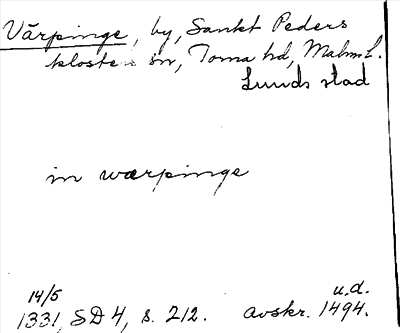 Värpinge, by, Sankt Peders
klosters sn, Torna hd, Malm. L.
Lunds stad
in wærpinge
14/5 u.d.
1331, SD 4, s. 212. avskr. 1494.